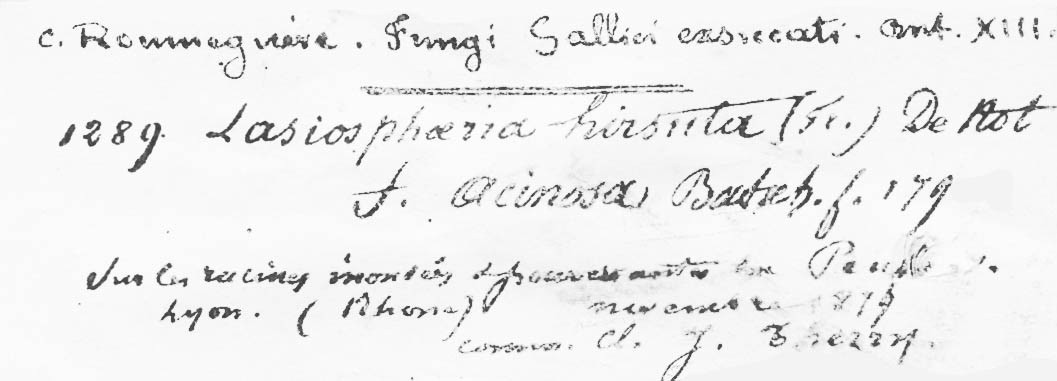 C. Roumeguère. Fungi Gallici exsiccati. Cent. XIII.
1289. Lasiosphæria hirsuta (Fr.) De Not
f. Acinosa, Batsch. f. 179
Sur les racines du Peuplier.
Lyon. (Rhône) novembre 1879
comm. cl. J. Therry.